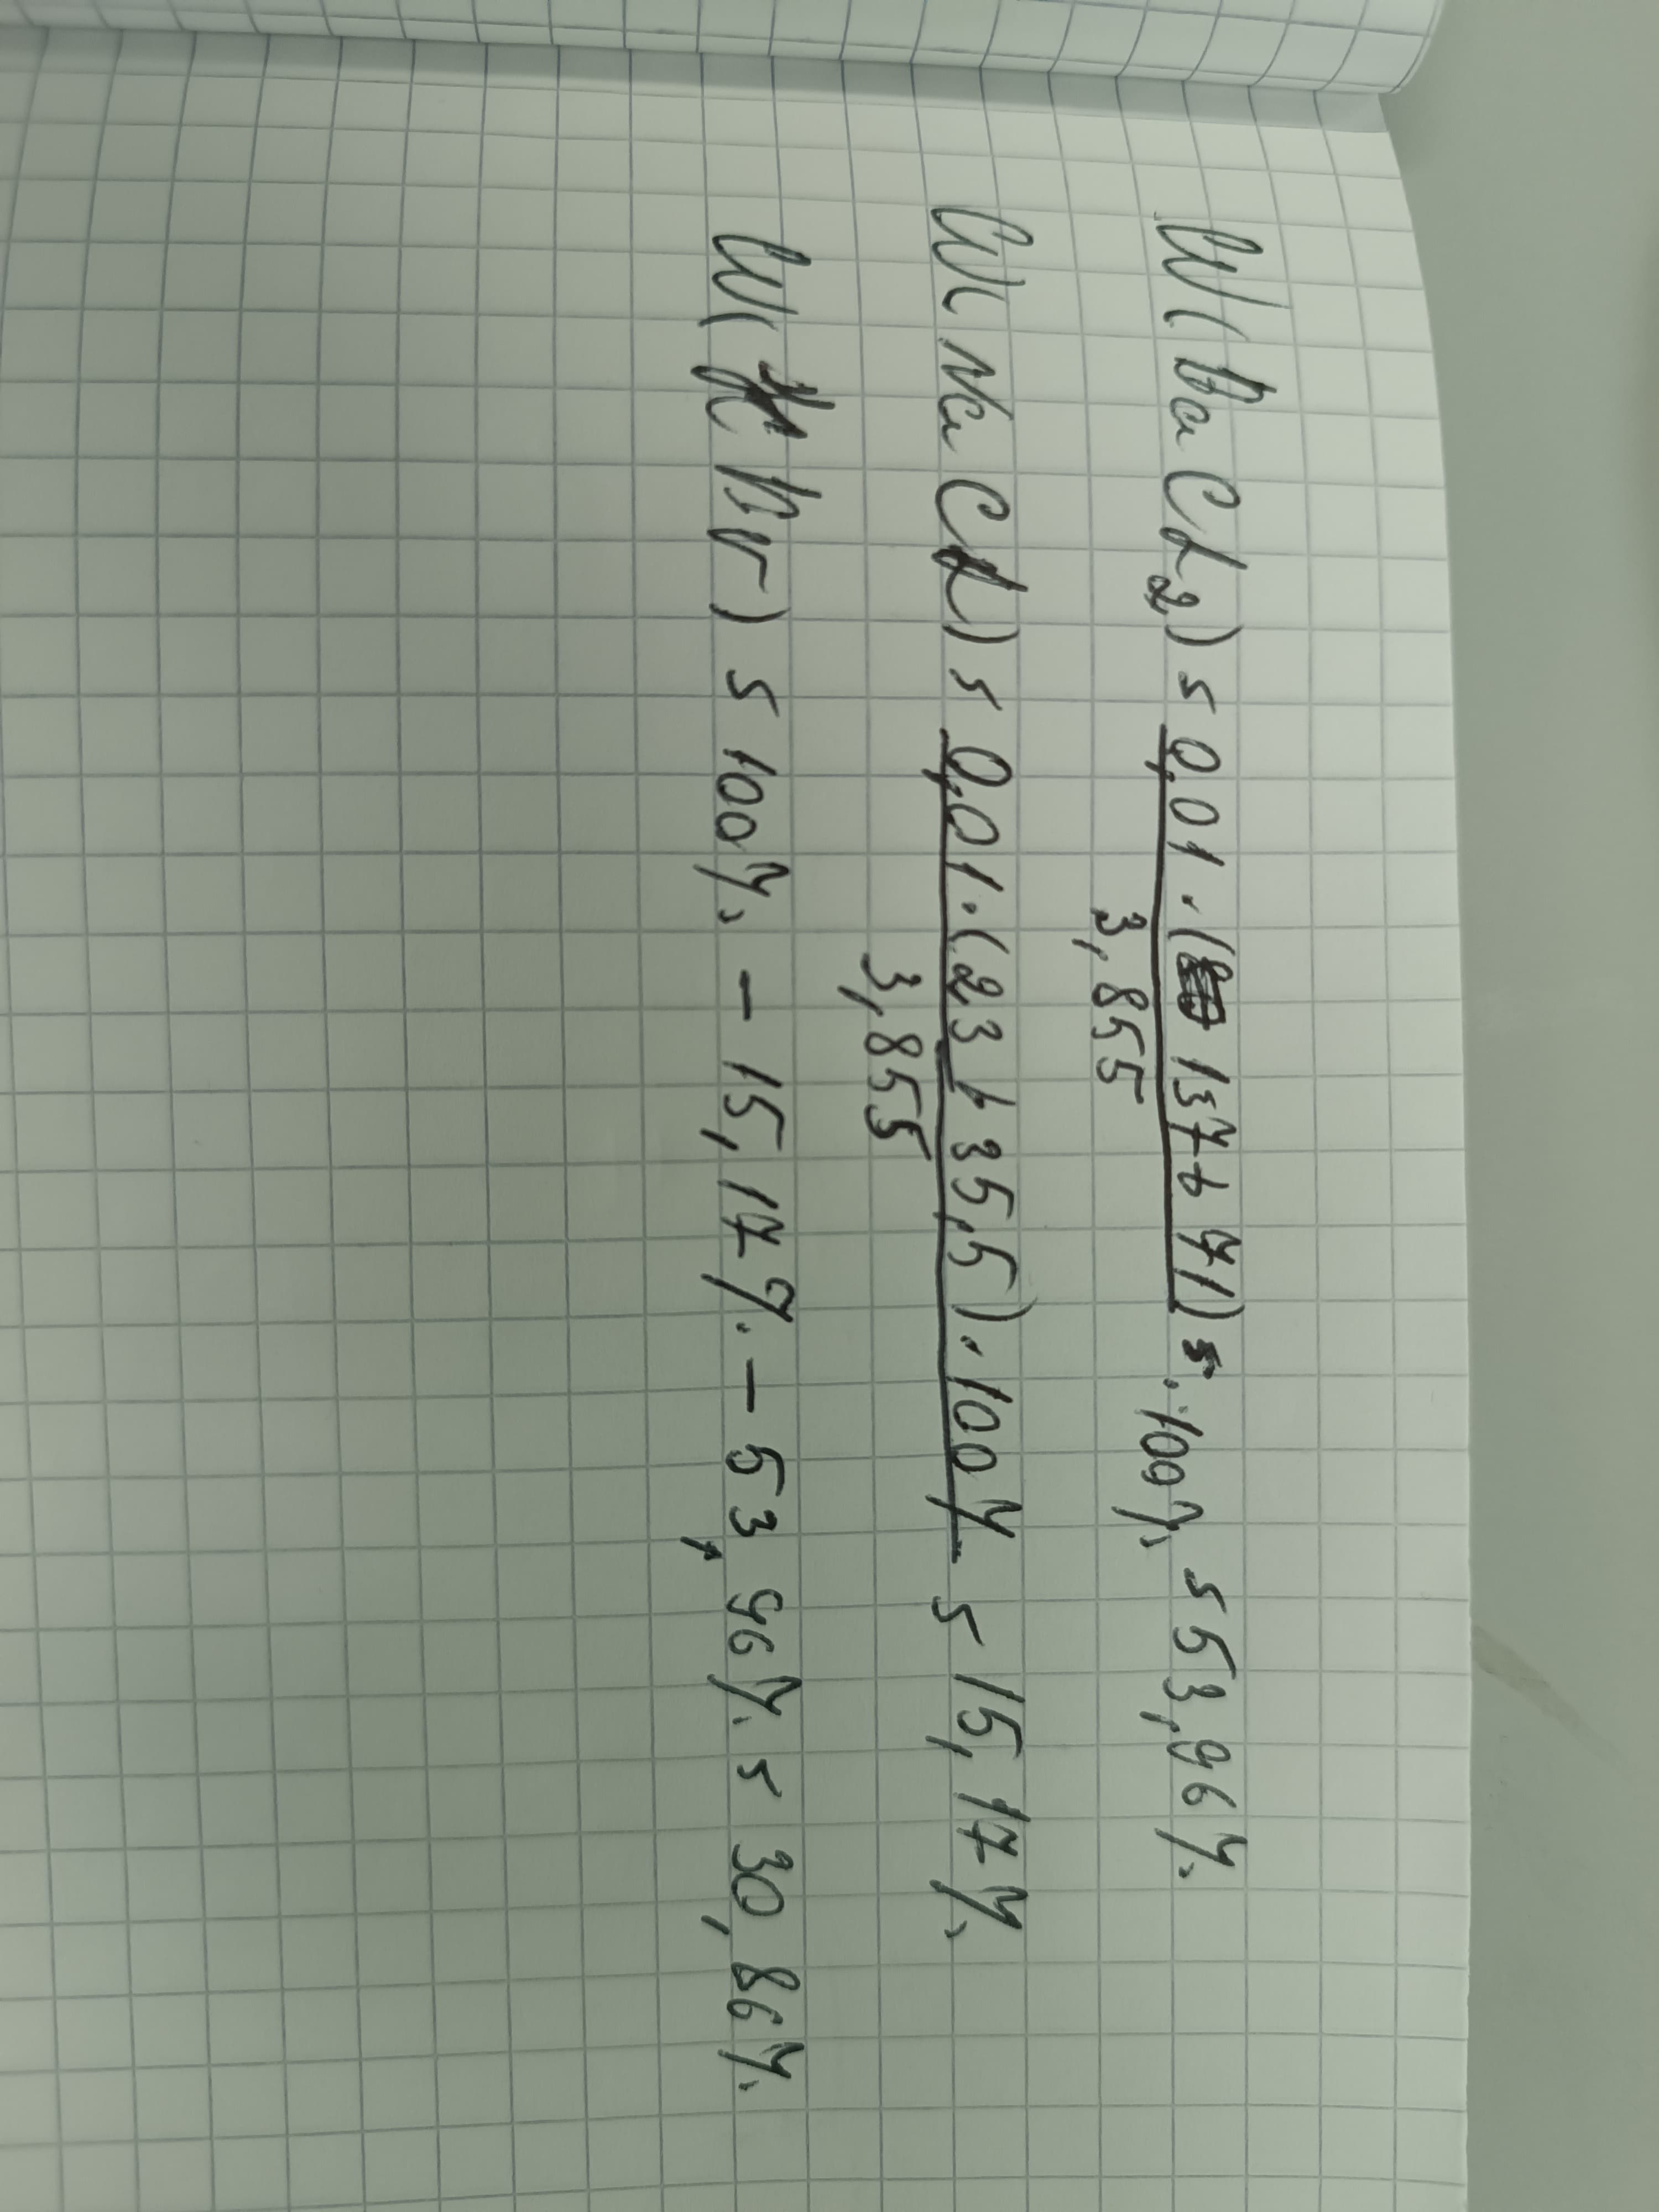 W(BaCl₂) = 0,01 · (137 + 71) · 100% = 53,96%
3,855
W(NaCl) = 0,01 · (23 + 35,5) · 100% = 15,17%
3,855
W(KBr) = 100% - 15,17% - 53,96% = 30,86%